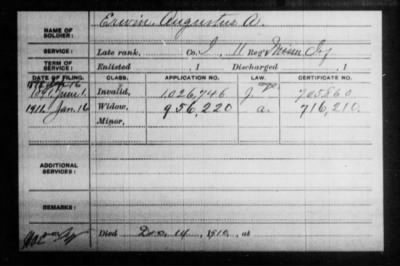 NAME OF SOLDIER: Erwin, Augustus A.
SERVICE: Late rank, Co. I, 11 Reg't Minn Inf
TERM OF SERVICE: Enlisted , 1 Discharged , 1
DATE OF FILING. CLASS. APPLICATION NO. LAW. CERTIFICATE NO.
June 1. Invalid, 1,026,746 J 705860
1911 Jan. 16 Widow, 956,220 a. 716,210
Minor,
ADDITIONAL SERVICES:
REMARKS:
Died Dec. 14, 1910, at